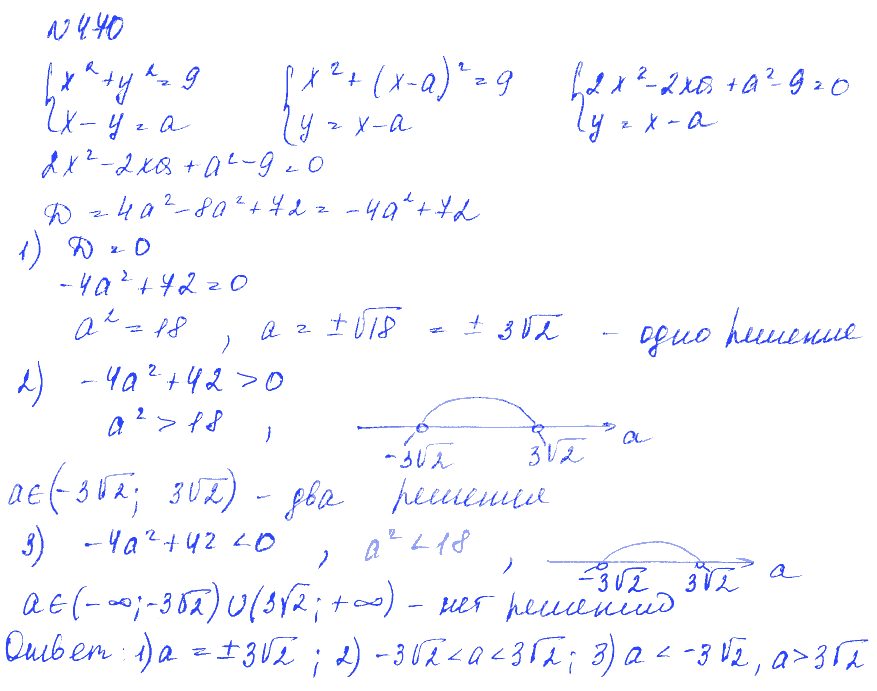 N 470
{x² + y² = 9 {x² + (x-a)² = 9 {2x² - 2xa + a² - 9 = 0
{x - y = a {y = x - a {y = x - a
2x² - 2xa + a² - 9 = 0
D = 4a² - 8a² + 72 = -4a² + 72
1) D = 0
-4a² + 72 = 0
a² = 18 , a = ±√18 = ± 3√2 - одно решение
2) -4a² + 72 > 0
a² > 18 ,
-3√2 3√2 a
a ∈ (-3√2; 3√2) - два решения
3) -4a² + 72 < 0 , a² < 18 ,
-3√2 3√2 a
a ∈ (-∞; -3√2) ∪ (3√2; +∞) - нет решений
Ответ: 1) a = ±3√2 ; 2) -3√2 < a < 3√2; 3) a < -3√2, a > 3√2